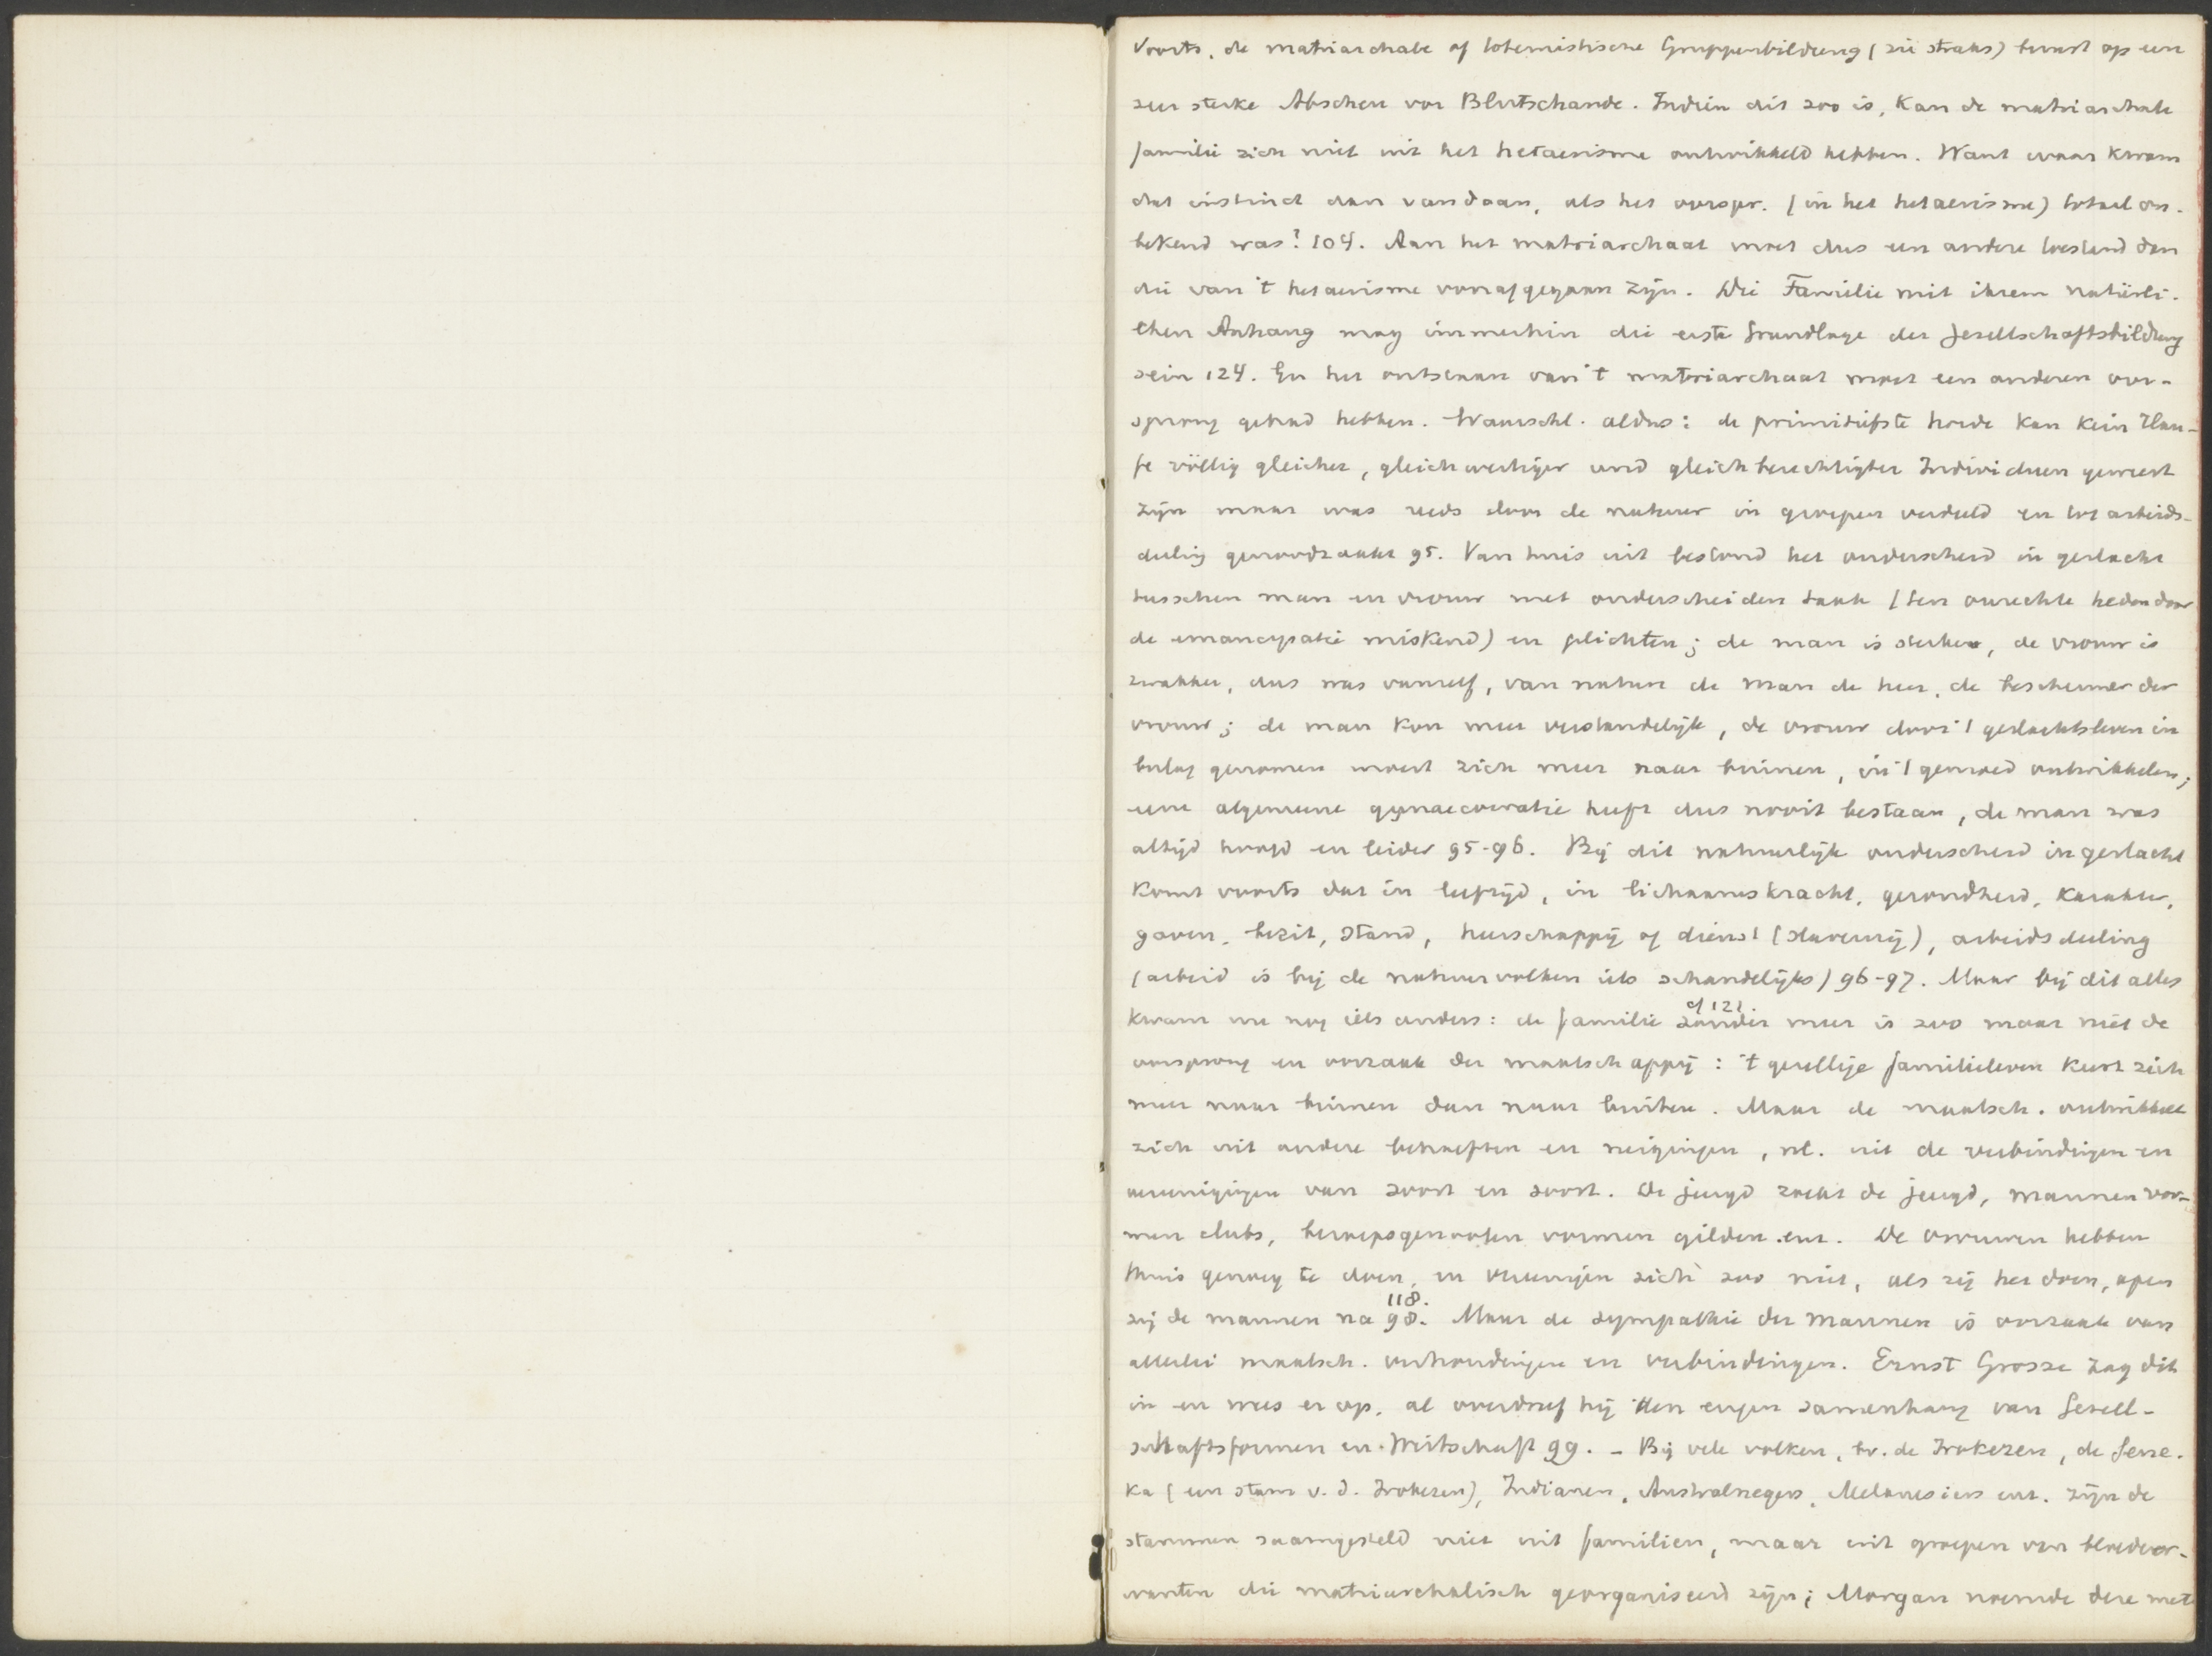 Voorts, de matriarchale of totemistische Gruppenbildung (zie straks) berust op een
zeer sterke Abscheu vor Blutschande. Indien dit zoo is, kan de matriarchale
familie zich niet uit het hetaerisme ontwikkeld hebben. Want waar kwam
dat instinct dan vandaan, als het oorspr. (in het hetaerisme) totaal on-
bekend was? 104. Aan het matriarchaat moet dus een andere toestand dan
die van 't hetaerisme voorafgegaan zijn. Die Familie mit ihrem natürli-
chen Anhang mag immerhin die erste Grundlage der Gesellschaftsbildung
sein 124. En het ontstaan van 't matriarchaat moet een anderen oor-
sprong gehad hebben. Waarschl. aldus: de primitiefste horde kan kein Hau-
fe völlig gleicher, gleichwertiger und gleichberechtigter Individuen geweest
zijn maar was reeds door de natuur in groepen verdeeld en tot arbeids-
deeling genoodzaakt 95. Van huis uit bestond het onderscheid in geslacht
tusschen man en vrouw met onderscheiden taak (ten onrechte heden door
de emancipatie miskend) en plichten; de man is sterker, de vrouw is
zwakker, dus was vanzelf, van nature de man de heer, de beschermer der
vrouw; de man kon meer verstandelijk, de vrouw door 't geslachtsleven in
beslag genomen moest zich meer naar binnen, in 't gemoed ontwikkelen;
eene algemeene gynaecocratie heeft dus nooit bestaan, de man was
altijd hoofd en leider 95-96. Bij dit natuurlijk onderscheid in geslacht
komt voorts dat in leeftijd, in lichaamskracht, gezondheid, karakter,
gaven, bezit, stand, heerschappij of dienst (slavernij), arbeidsdeeling
(arbeid is bij de natuurvolken iets schandelijks) 96-97. Maar bij dit alles
cf 121.
kwam nu nog iets anders: de familie zonder meer is zoo maar niet de
oorsprong en oorzaak der maatschappij: 't gezellige familieleven keert zich
meer naar binnen dan naar buiten. Maar de maatsch. ontwikkelt
zich uit andere behoeften en neigingen, nl. uit de verbindingen en
vereenigingen van soort en soort. De jeugd zoekt de jeugd, mannen vor-
men clubs, beroepsgenooten vormen gilden enz. De vrouwen hebben
thuis genoeg te doen, en vereenigen zich zoo niet, als zij het doen, apen
118.
zij de mannen na 98. Maar de sympathie der mannen is oorzaak van
allerlei maatsch. verhoudingen en verbindingen. Ernst Grosse zag dit
in en wees er op, al overdreef hij den engen samenhang van Gesell-
schaftsformen en Wirtschaft 99. - Bij vele volken, bv. de Irokezen, de Sene-
ka (een stam v. d. Irokezen), Indianen, Australnegers, Melanesiers enz. zijn de
stammen saamgesteld niet uit familien, maar uit groepen van bloedver-
wanten die matriarchalisch georganiseerd zijn; Morgan noemde deze met